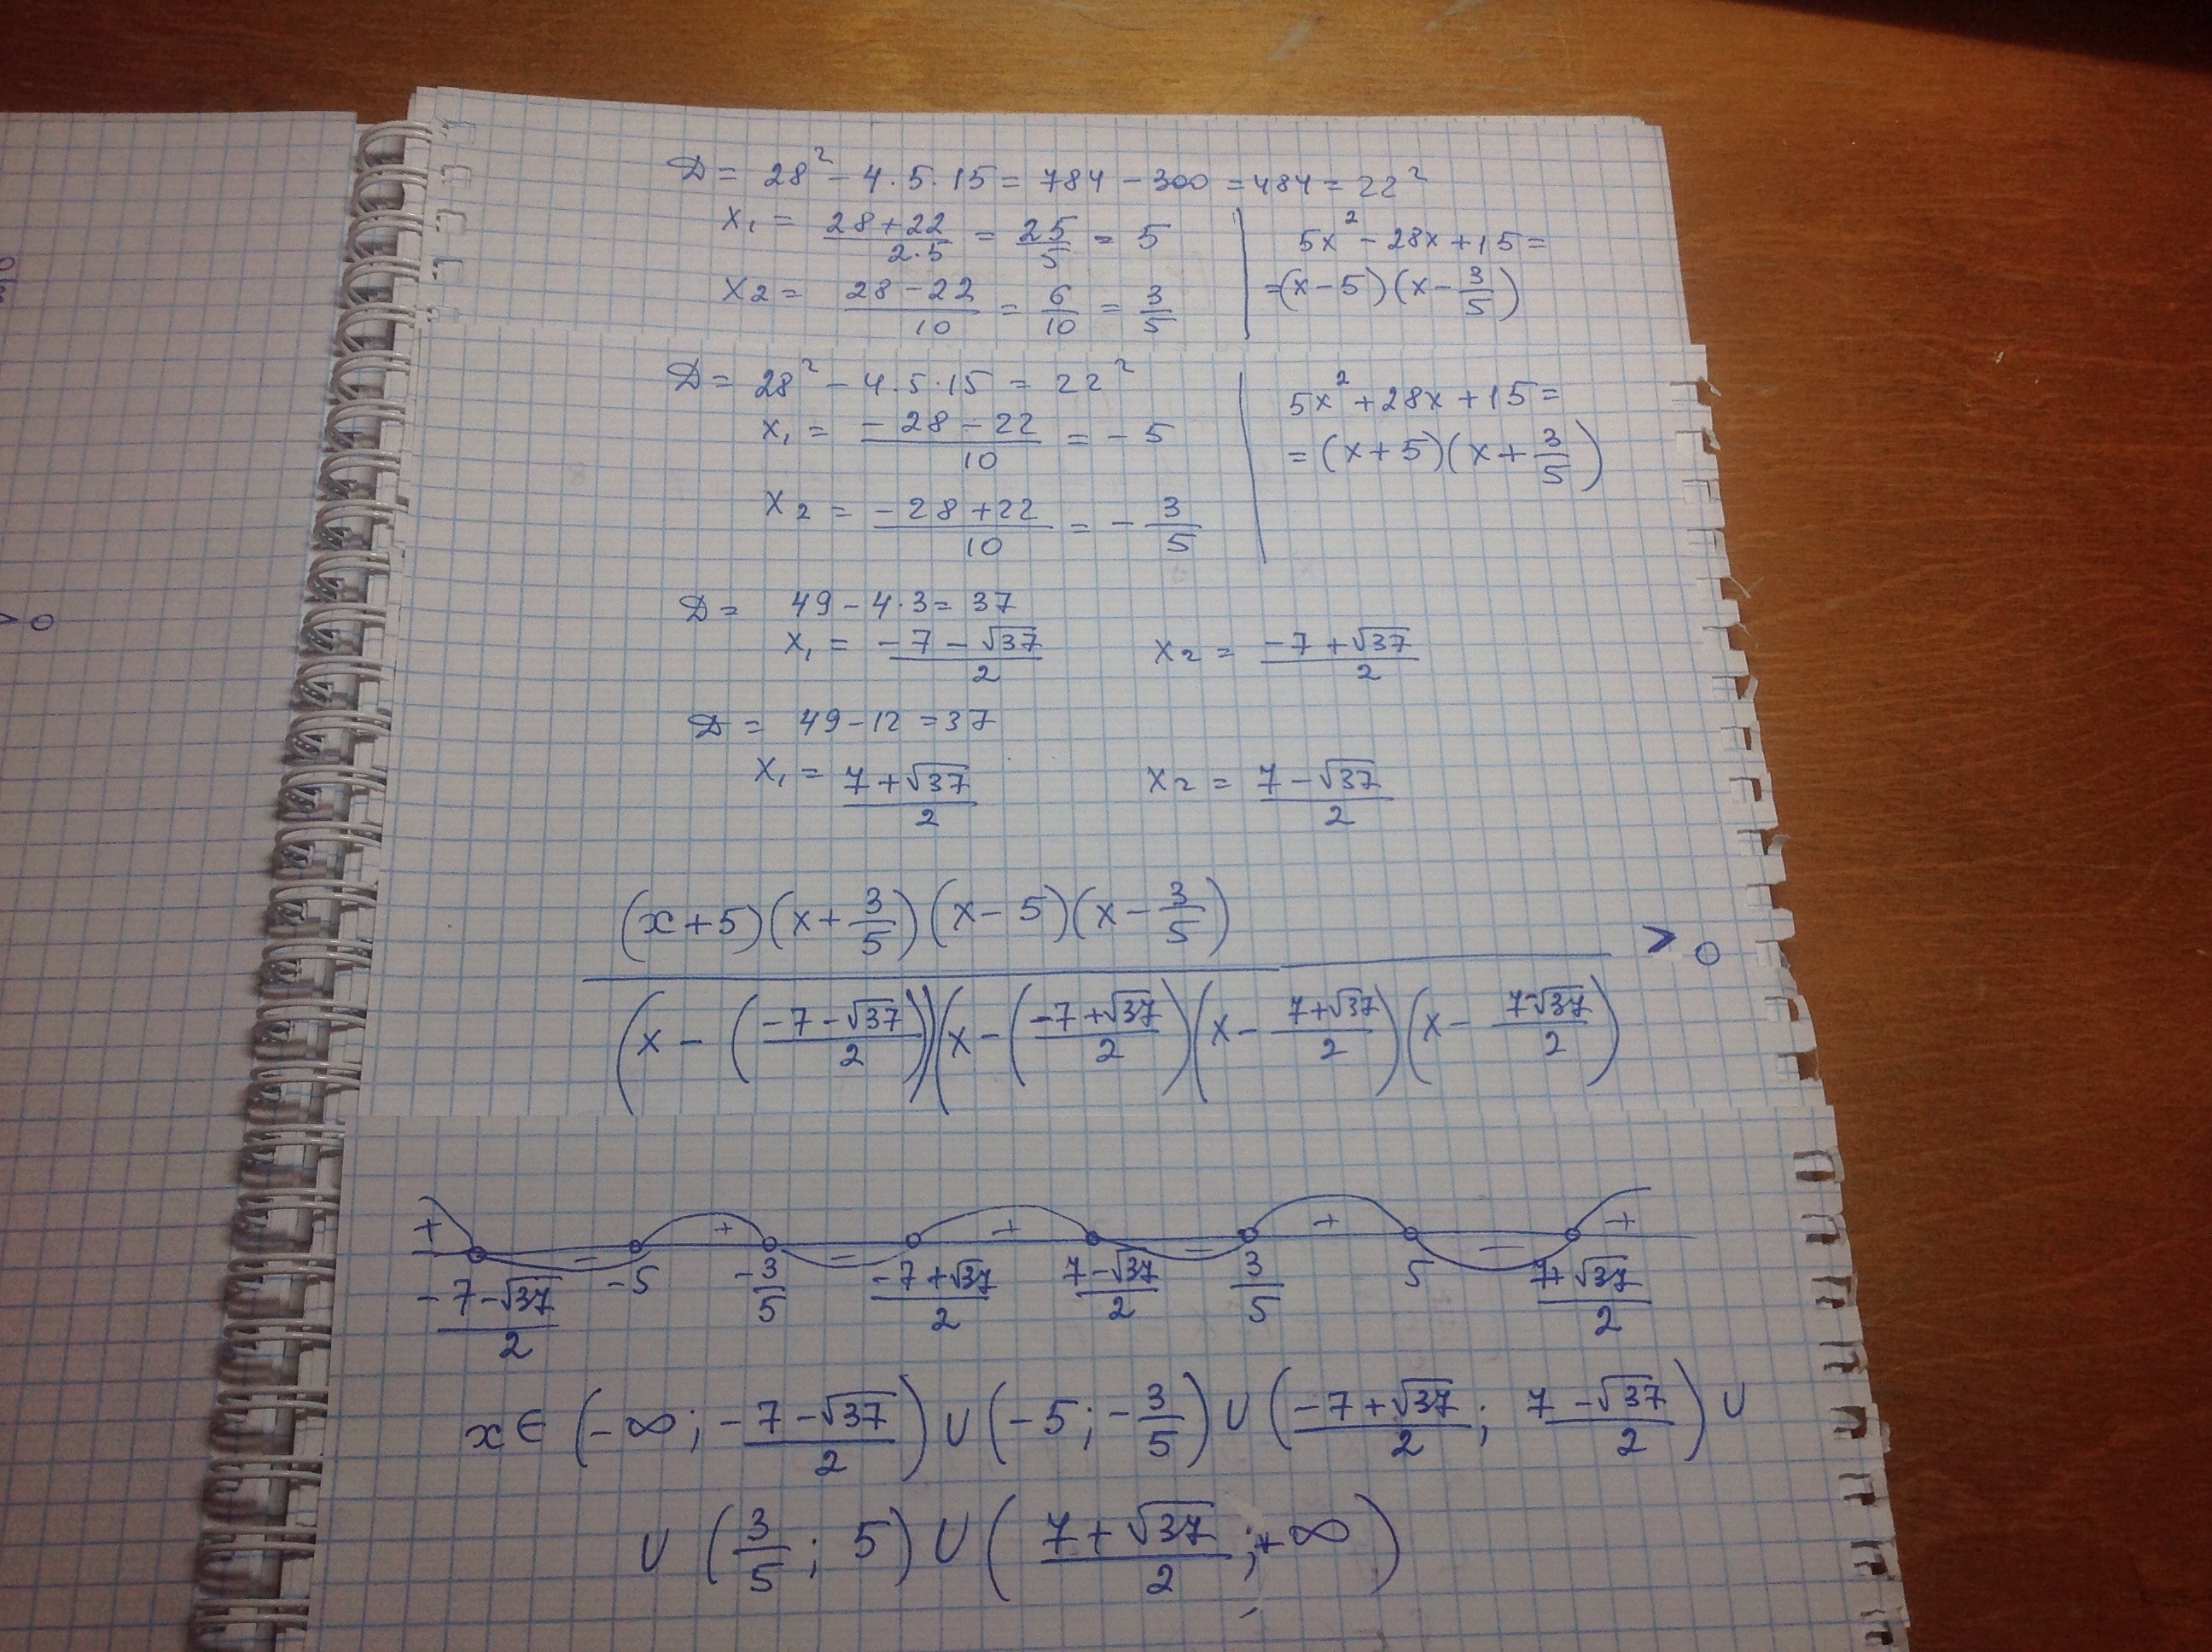 D = 28² − 4·5·15 = 784 − 300 = 484 = 22²
x₁ = (28+22)/(2·5) = 25/5 = 5
x₂ = (28−22)/10 = 6/10 = 3/5
5x² − 28x + 15 =
= (x−5)(x − 3/5)
D = 28² − 4·5·15 = 22²
x₁ = (−28−22)/10 = −5
x₂ = (−28+22)/10 = −3/5
5x² + 28x + 15 =
= (x+5)(x + 3/5)
D = 49 − 4·3 = 37
x₁ = (−7−√37)/2 x₂ = (−7+√37)/2
D = 49 − 12 = 37
x₁ = (7+√37)/2 x₂ = (7−√37)/2
(x+5)(x+3/5)(x−5)(x−3/5) / (x − ((−7−√37)/2))(x − (−7+√37)/2)(x − (7+√37)/2)(x − (7−√37)/2) > 0
+ − + − + − + − +
(−7−√37)/2 −5 −3/5 (−7+√37)/2 (7−√37)/2 3/5 5 (7+√37)/2
x ∈ (−∞; (−7−√37)/2) ∪ (−5; −3/5) ∪ ((−7+√37)/2; (7−√37)/2) ∪
∪ (3/5; 5) ∪ ((7+√37)/2; +∞)
0